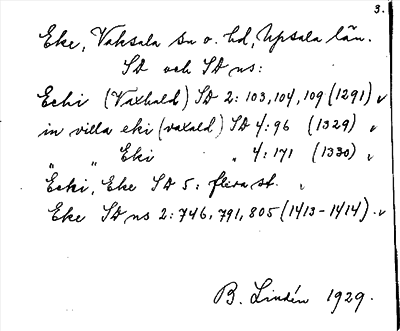 3.
Eke, Vaksala sn o. hd, Upsala län.
SD och SD ns:
Ecki (Vaxhald) SD 2: 103, 104, 109 (1291) v
in villa eki (vaxald) SD 4: 96 (1329) v
" " Eki " 4: 171 (1330) v
Ecki, Eke SD 5: flera st. v
Eke SD ns 2: 746, 791, 805 (1413-1414). v
B. Lindén 1929.